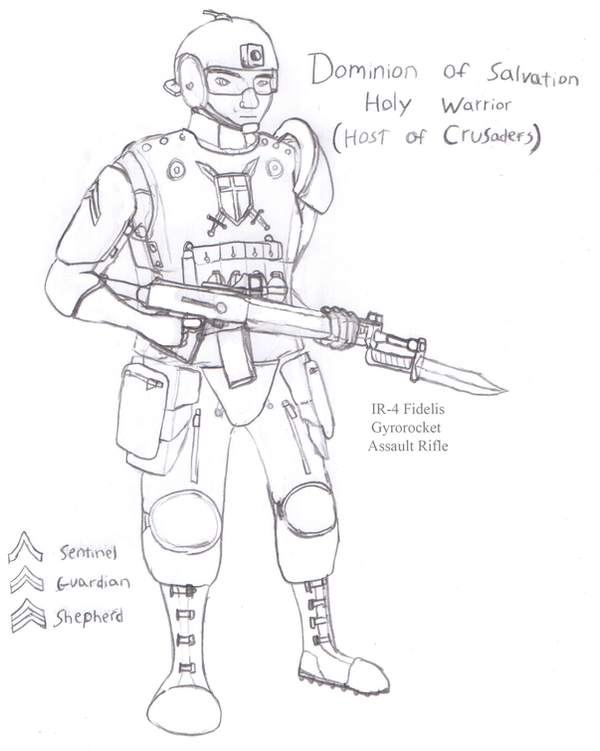 Dominion of Salvation
Holy Warrior
(HOST of Crusaders)
IR-4 Fidelis
Gyrorocket
Assault Rifle
Sentinel
Guardian
Shepherd